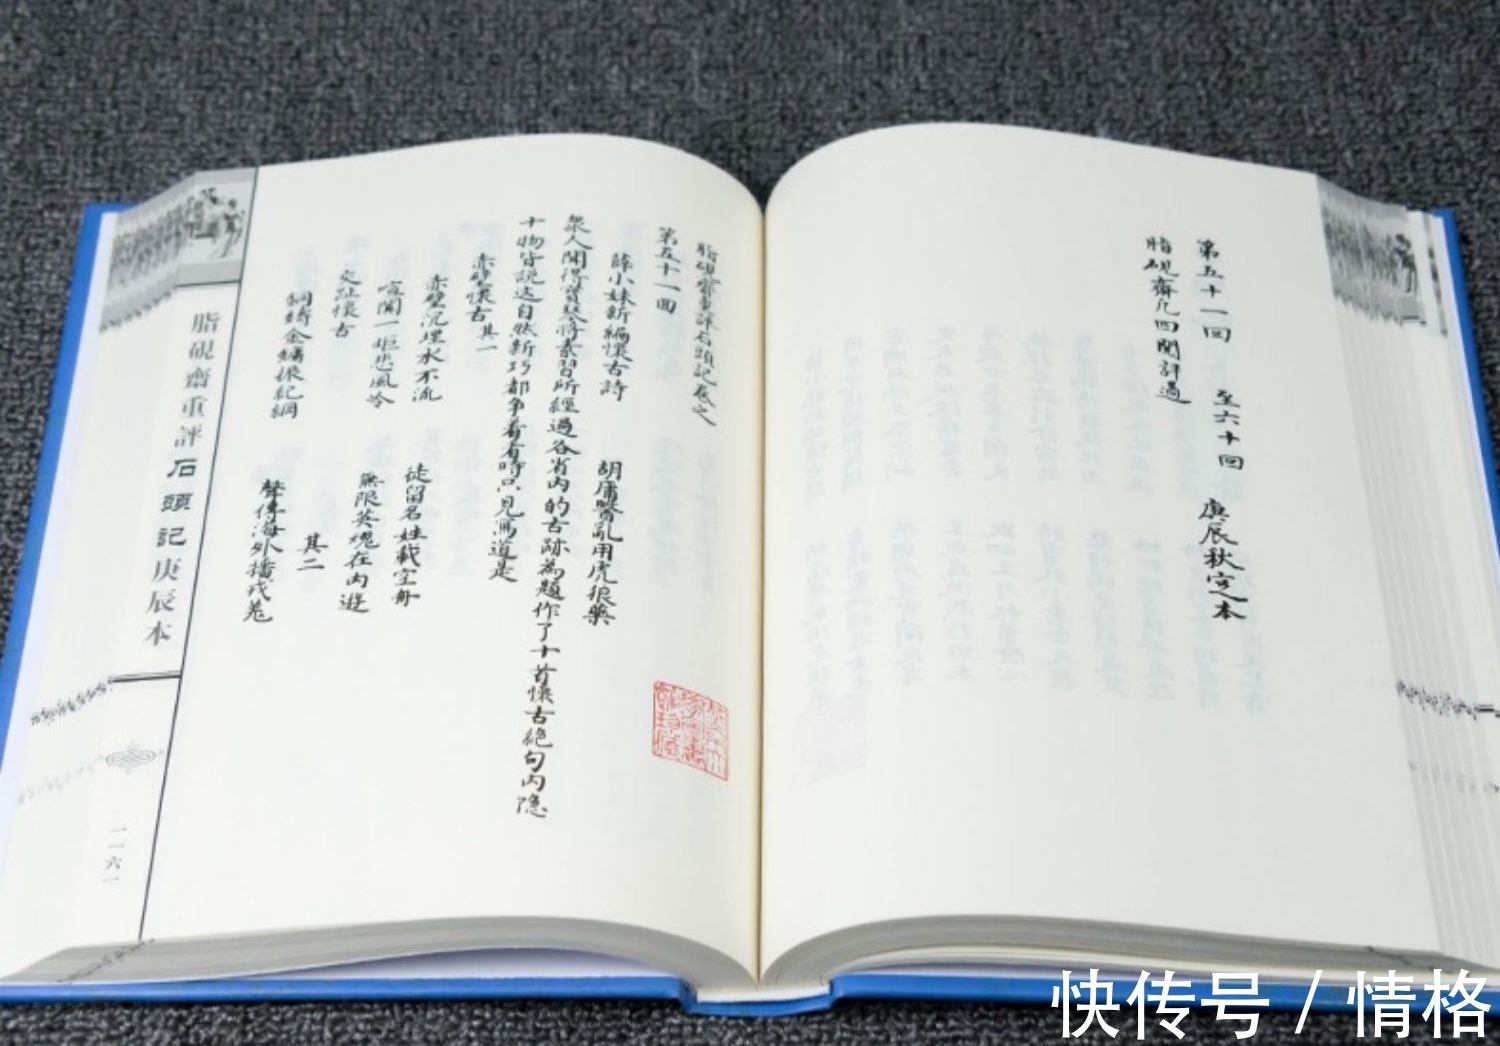 第五十一回 至六十回 庚辰秋定本
脂硯齋凡四閱評過
脂硯齋重評石頭記卷之
第五十一回
薛小妹新編懷古詩 胡庸醫亂用虎狼藥
衆人聞得寶琴將素習所經過各省内的古跡為題作了十首懷古絶句内隐
十物皆説这自然新巧都争着看時只見寫道是
赤壁懷古其一
赤壁沉埋水不流 徒留名姓載空舟
喧闐一炬悲風冷 無限英魂在内遊
交趾懷古 其二
銅鑄金鏞振紀綱 聲傳海外播戎羌
脂硯齋重評石頭記庚辰本
一一六一
快传号 / 情格